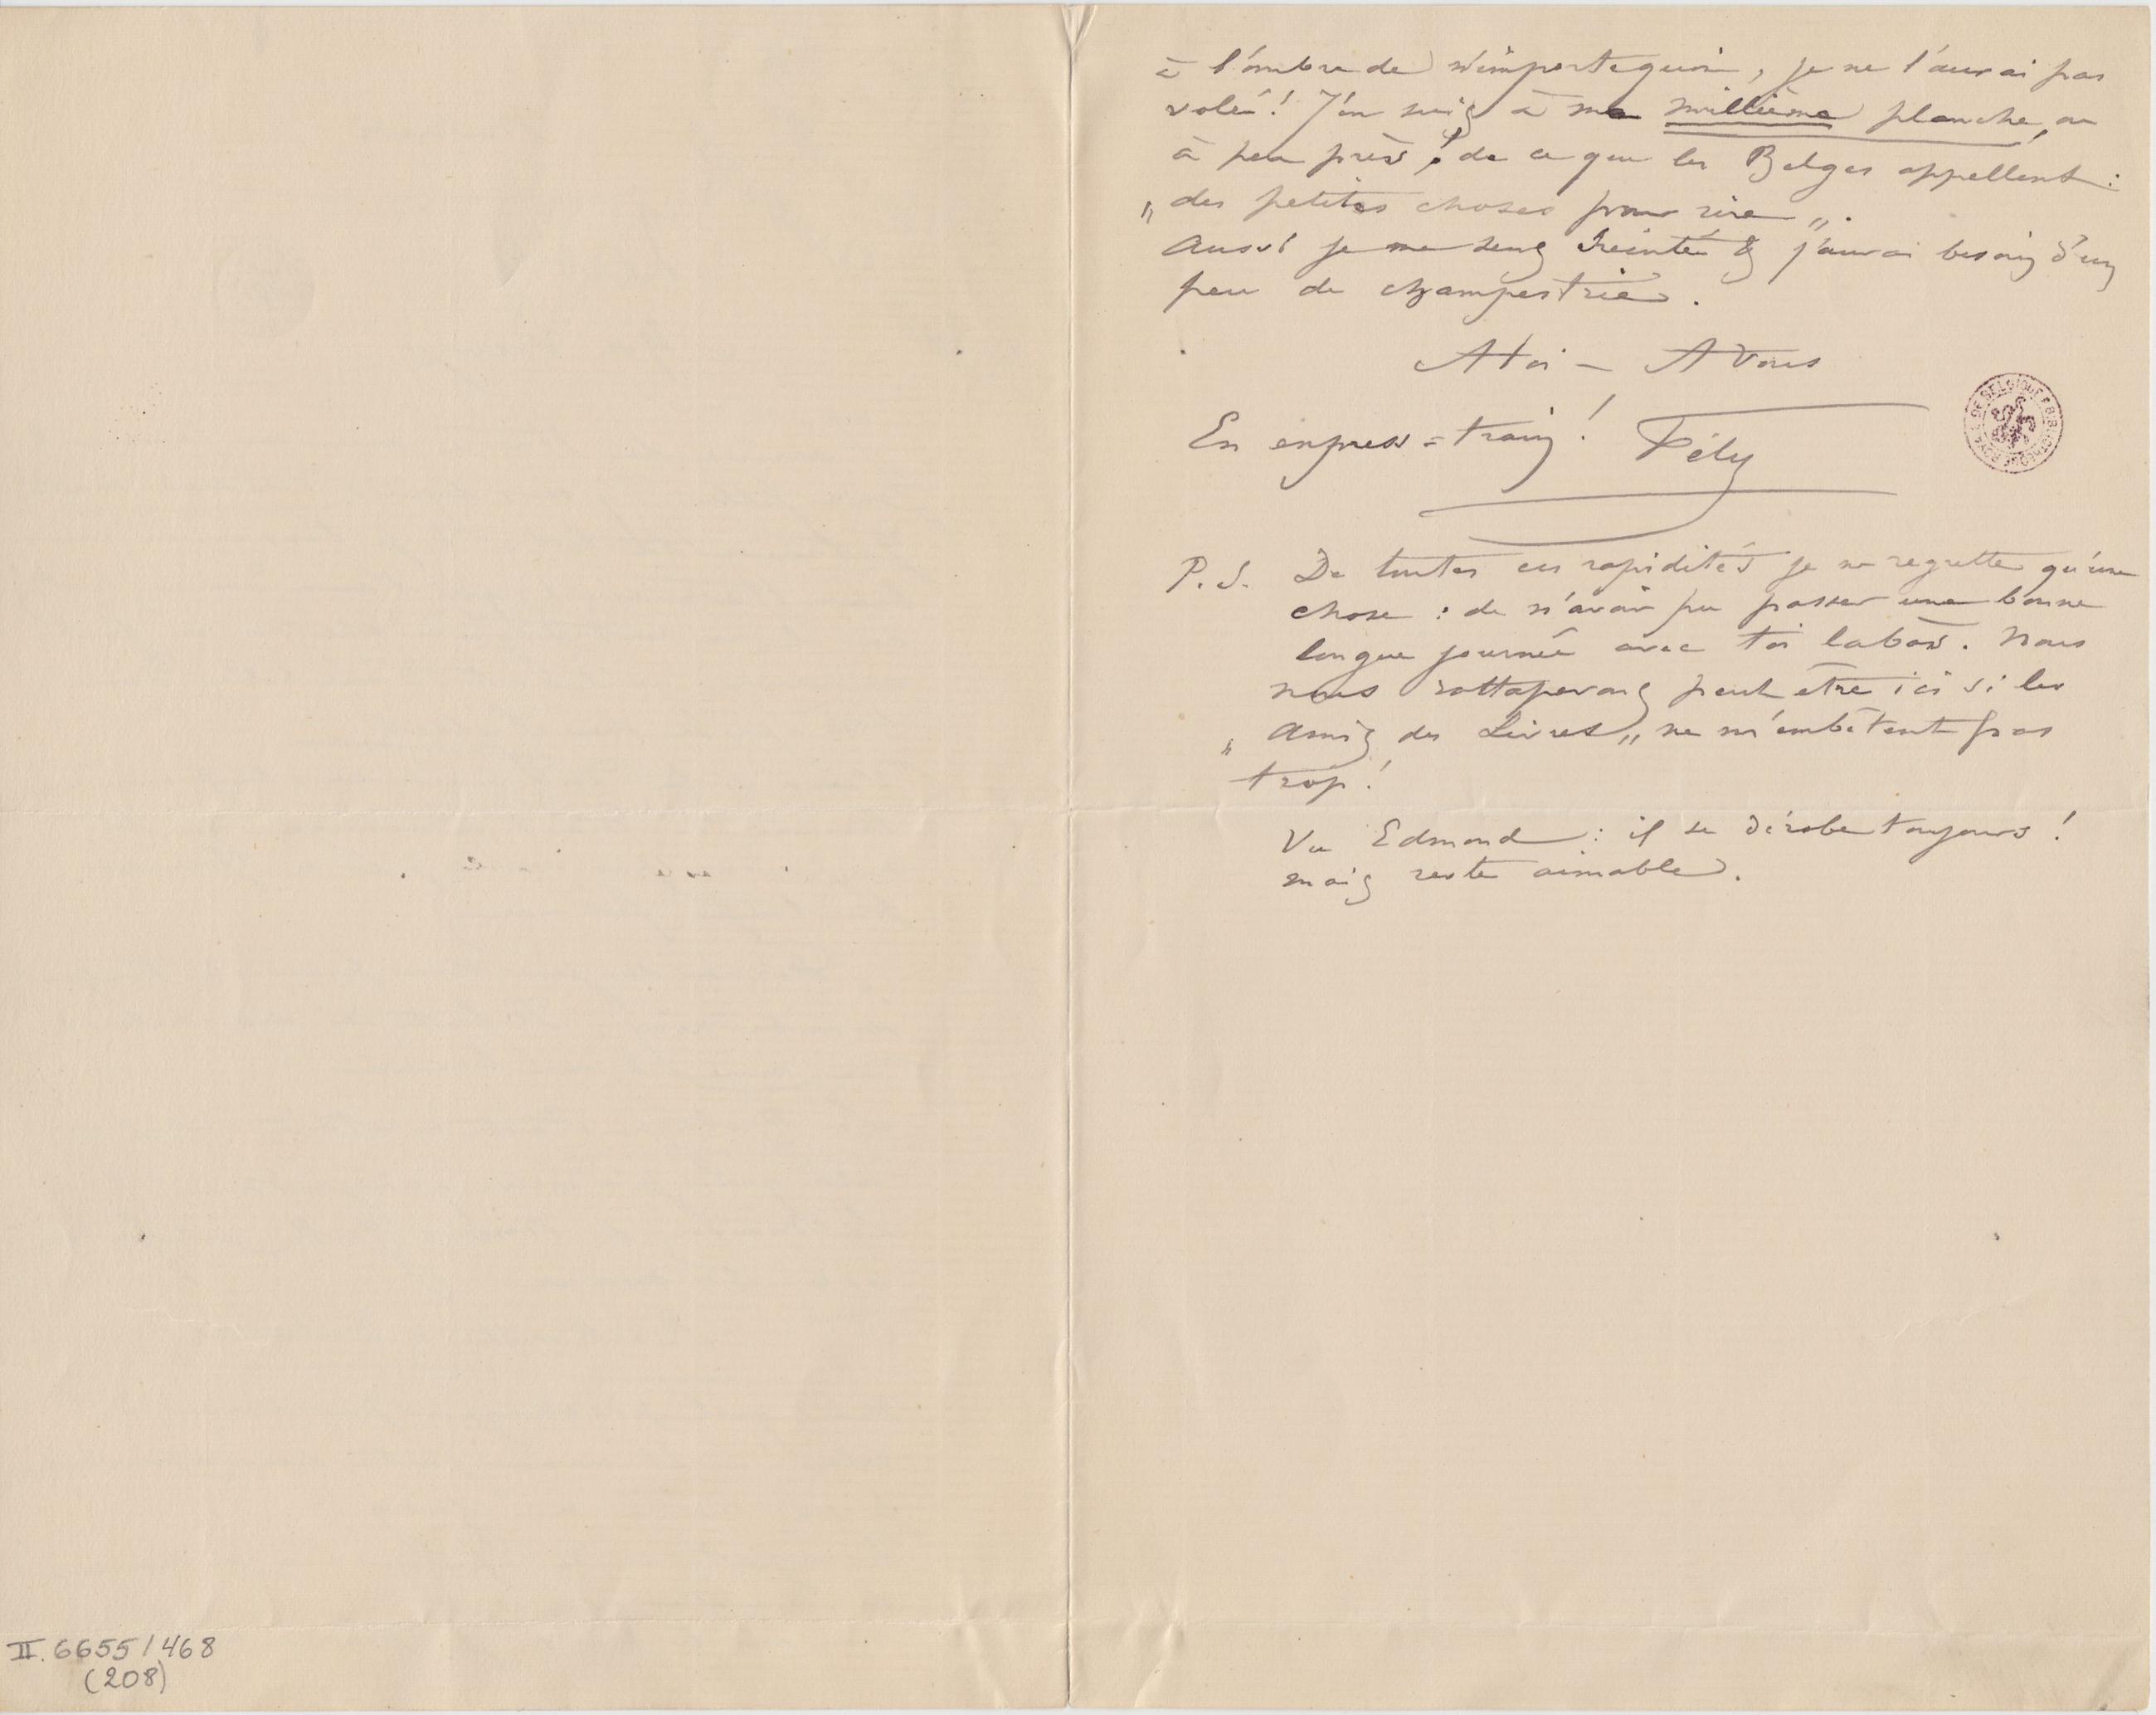 à l'ombre de n'importe quoi, je ne l'aurai pas
volé! J'en suis à ma millième planche, ou
à peu près, de ce que les Belges appellent :
„ des petites choses pour rire „.
Aussi je me sens éreinté & j'aurai besoin d'un
peu de champestrie.
A toi – A Vous
En express=train! Fély
P. S. De toutes ces rapidités je ne regrette qu'une
chose : de n'avoir pu passer une bonne
longue journée avec toi labas. Nous
nous rattaperons peut être ici si les
„ Amis des Livres „ ne m'embêtent pas
trop!
Vu Edmond : il se dérobe toujours!
mais reste aimable.
II. 6655/468
(208)